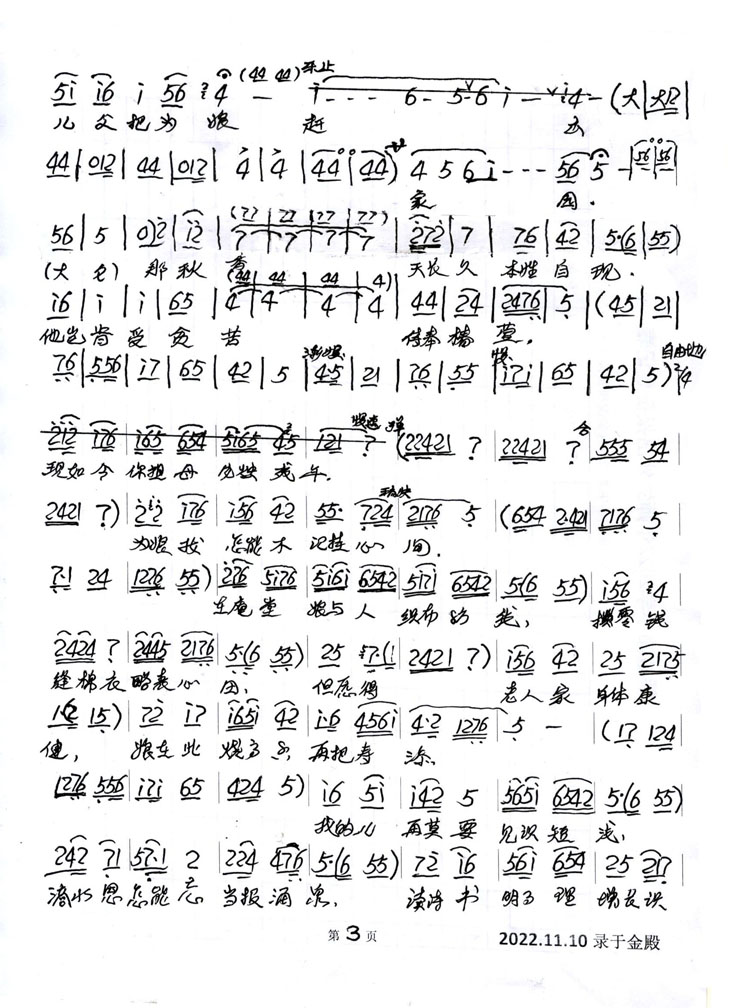 5i i6 i 56 4 (44 44) - i - - - 6 - 5·6 i - i4 - (大|大
儿 父 把 为 娘 赶 去
44|012|44|012|4|4|44|44) 4 5 6 i - - - 56 5 -|56|56|
家 园.
56|5|0 2|i2|(77|77|77|77) 7 7 7 7|272|7|76|42|5·(6|55)
(大 七) 那 秋 香 天长 久 本性 自 现.
i6|i|i|65|(44|44|44|4) 4 4 4 4|44|24|2476|5|(45|21
他岂 肯 受 贫 苦 侍奉 椿 萱.
76|556|i7|65|42|5|4·5|21|76|55|i7i|65|42|5) 2/4
渐慢 慢 自由地
212 i76|i65 654|5165 45|121 7|(22421 7|22421 7|555 54
现如今 你想母 年.
2421 7)|22 i76|i56 42|55· 724|2176 5|(654 2·421|7176 5
为娘 我 怎能不 记挂心 间.
7·1 24|1276 55)|276 5176|5161 6542|5171 6542|5(6 55)|i56 4
在庵堂 娘与人 织布纺 线, 攒零钱
2424 7|2445 2176|5·(6 55)|25 7·(1|2421 7)|i56 42|25 2175
缝棉衣 略表心 田, 但愿得 老人家 身体康
162 15)|72 i7|i651 42|i·6 4561|4·2 1276|5 -|(17 124
健, 娘在此 烧 香 再把寿 添.
1276 556|i7i 65|424 5)|i6 5i|i42 5|5651 6542|5·(6 55)
我的儿 再莫要 见识短 浅,
242 71|57·1 2|224 476|5·(6 55)|72 i6|56i 654|25 217
滴水恩怎能忘 当报涌 泉, 读诗书 明事理 增长识
第 3 页
2022.11.10 录于金殿